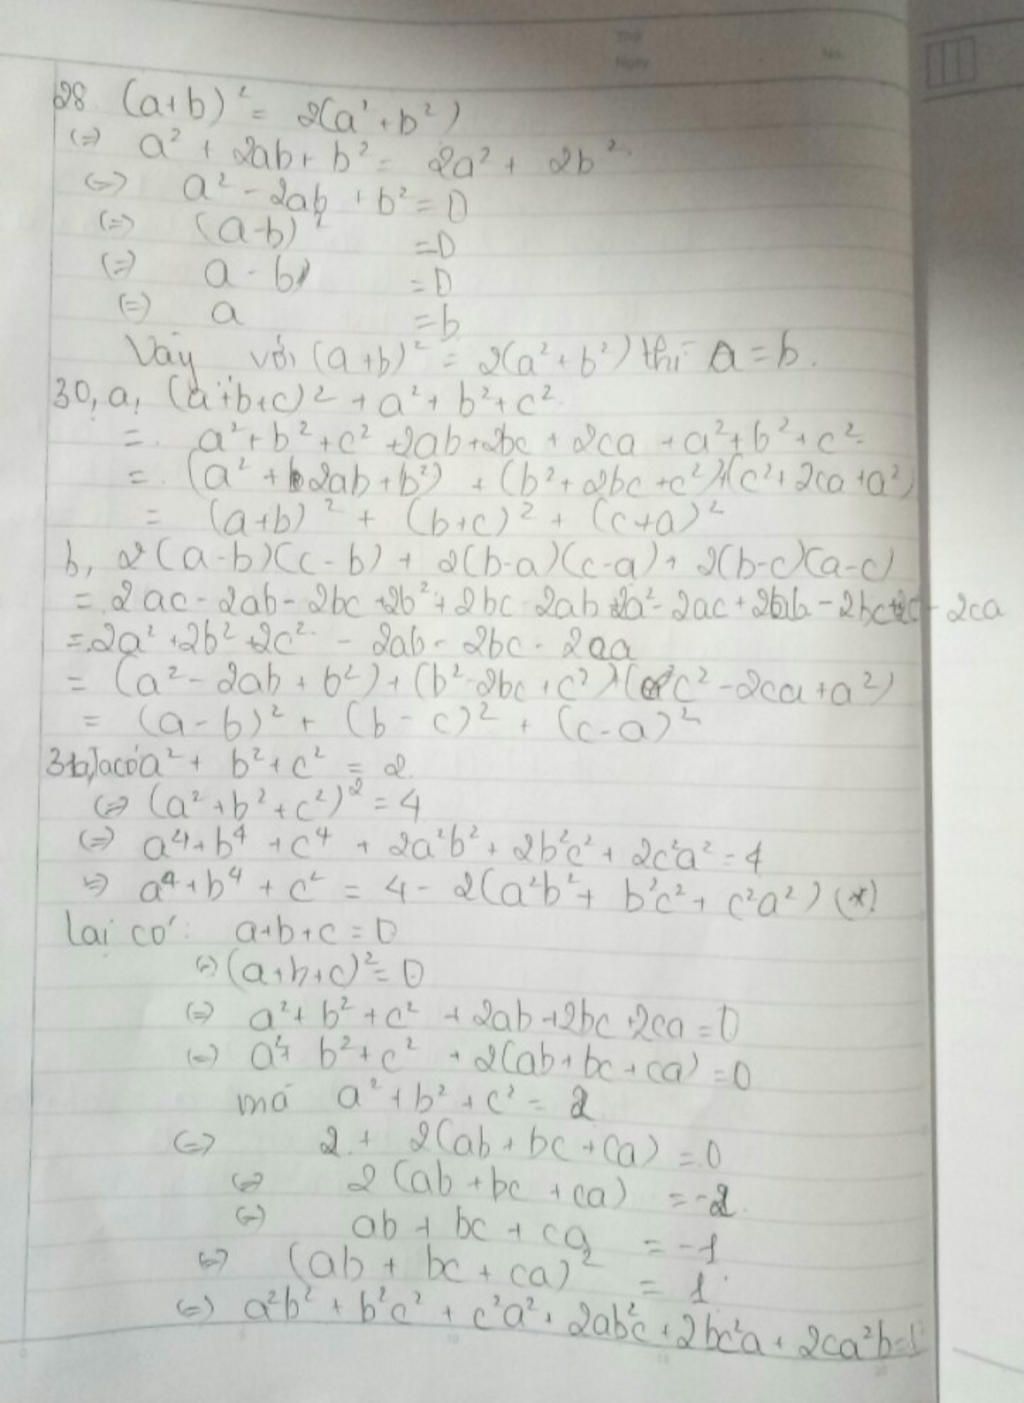 28 (a+b)² = 2(a²+b²)
(=) a² + 2ab + b² = 2a² + 2b²
(=) a² - 2ab + b² = 0
(=) (a-b)² = 0
(=) a - b = 0
(=) a = b
Vậy với (a+b)² = 2(a²+b²) thì a = b.
30, a, (a+b+c)² + a² + b² + c²
= a² + b² + c² + 2ab + 2bc + 2ca + a² + b² + c²
= (a² + 2ab + b²) + (b² + 2bc + c²) + (c² + 2ca + a²)
= (a+b)² + (b+c)² + (c+a)²
b, 2(a-b)(c-b) + 2(b-a)(c-a) + 2(b-c)(a-c)
= 2ac - 2ab - 2bc + 2b² + 2bc - 2ab + 2a² - 2ac + 2ab - 2bc + 2c² - 2ca
= 2a² + 2b² + 2c² - 2ab - 2bc - 2ca
= (a² - 2ab + b²) + (b² - 2bc + c²) + (c² - 2ca + a²)
= (a-b)² + (b-c)² + (c-a)²
Ta có a² + b² + c² = 2
(=) (a² + b² + c²)² = 4
(=) a⁴ + b⁴ + c⁴ + 2a²b² + 2b²c² + 2c²a² = 4
(=) a⁴ + b⁴ + c² = 4 - 2(a²b² + b²c² + c²a²) (*)
lại có: a+b+c = 0
(=) (a+b+c)² = 0
(=) a² + b² + c² + 2ab + 2bc + 2ca = 0
(=) a² + b² + c² + 2(ab + bc + ca) = 0
mà a² + b² + c² = 2
(=) 2 + 2(ab + bc + ca) = 0
(=) 2(ab + bc + ca) = -2
(=) ab + bc + ca = -1
(=) (ab + bc + ca)² = 1
(=) a²b² + b²c² + c²a² + 2ab²c + 2bc²a + 2ca²b = 1